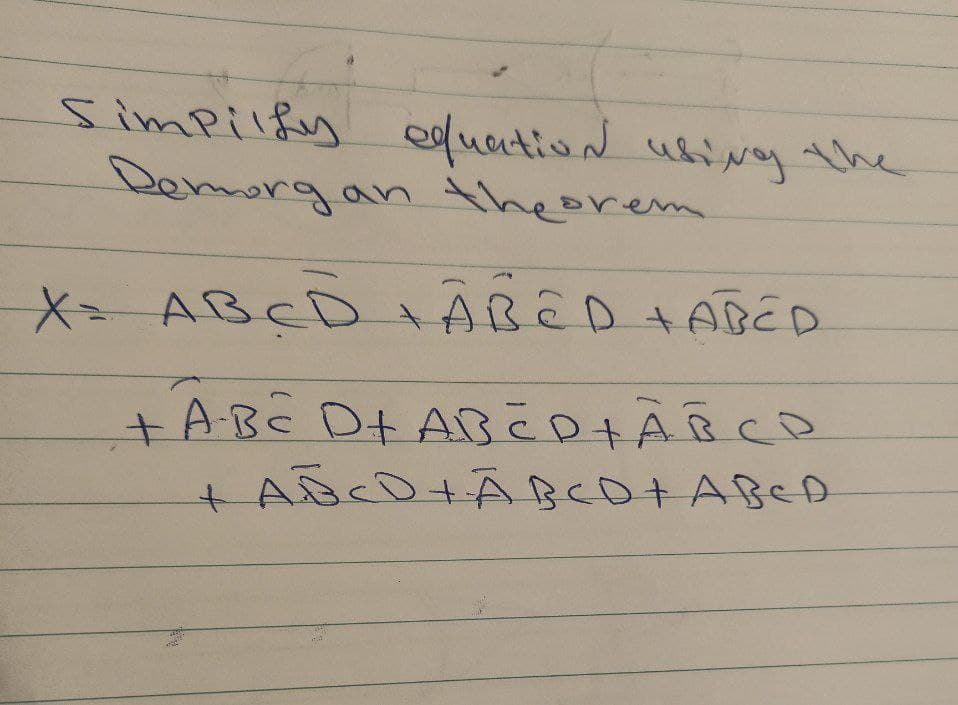 Simpilfy equation using the
Demorgan theorem
X= ABCD̅ + A̅B̅C̅D + AB̅C̅D
+ A̅BC̅D + ABC̅D + A̅B̅CD
+ AB̅CD + A̅BCD + ABCD